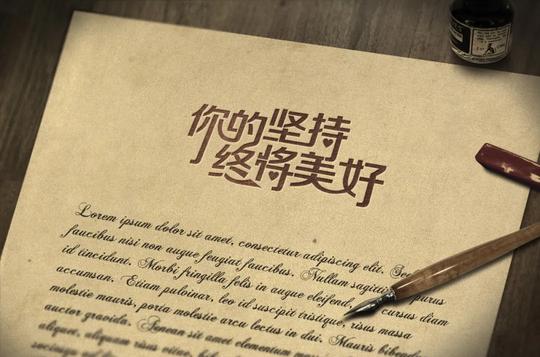 你的坚持
终将美好
Lorem ipsum dolor sit amet, consectetur adipiscing elit. Sed
faucibus nisi non augue feugiat faucibus. Nullam sagittis purus
id tincidunt. Morbi fringilla felis in augue eleifend, cursus diam
accumsan. Etiam pulvinar, leo id suscipit tristique, risus massa
molestie mauris, porta molestie arcu lectus in dui. Mauris bibendum
auctor gravida. Aenean sit amet elementum
aliquet, aliquam risus vitae,